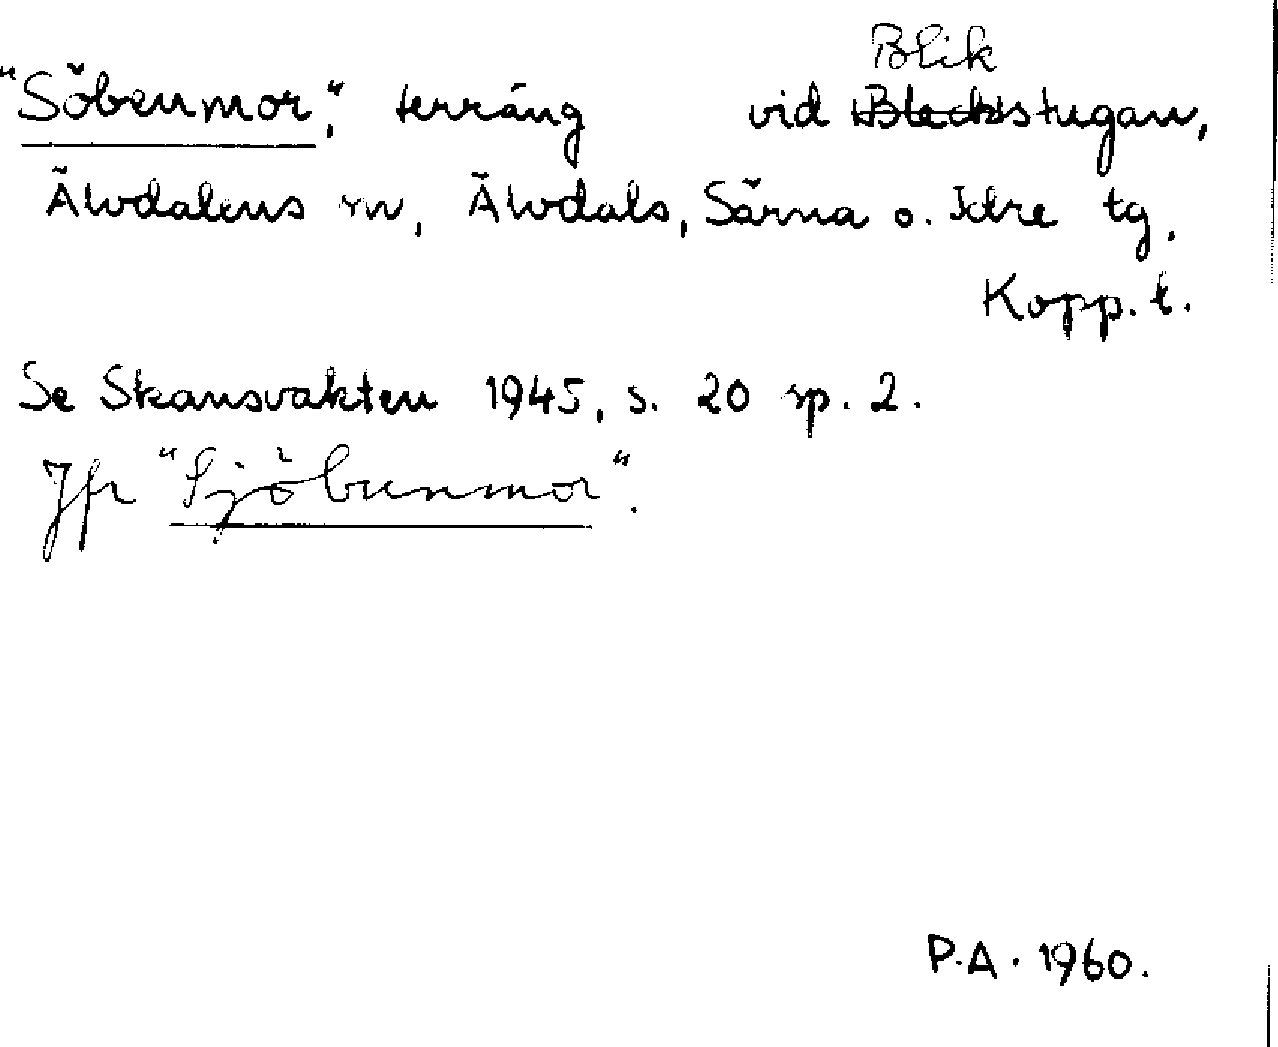 Blik
"Söbenmor", terräng vid Bleckstugan,
Älvdalens sn, Älvdals, Särna o. Idre tg.
Kopp. l.
Se Skansvakten 1945, s. 20 sp. 2.
Jfr "Sjöbunmor".
P.A. 1960.